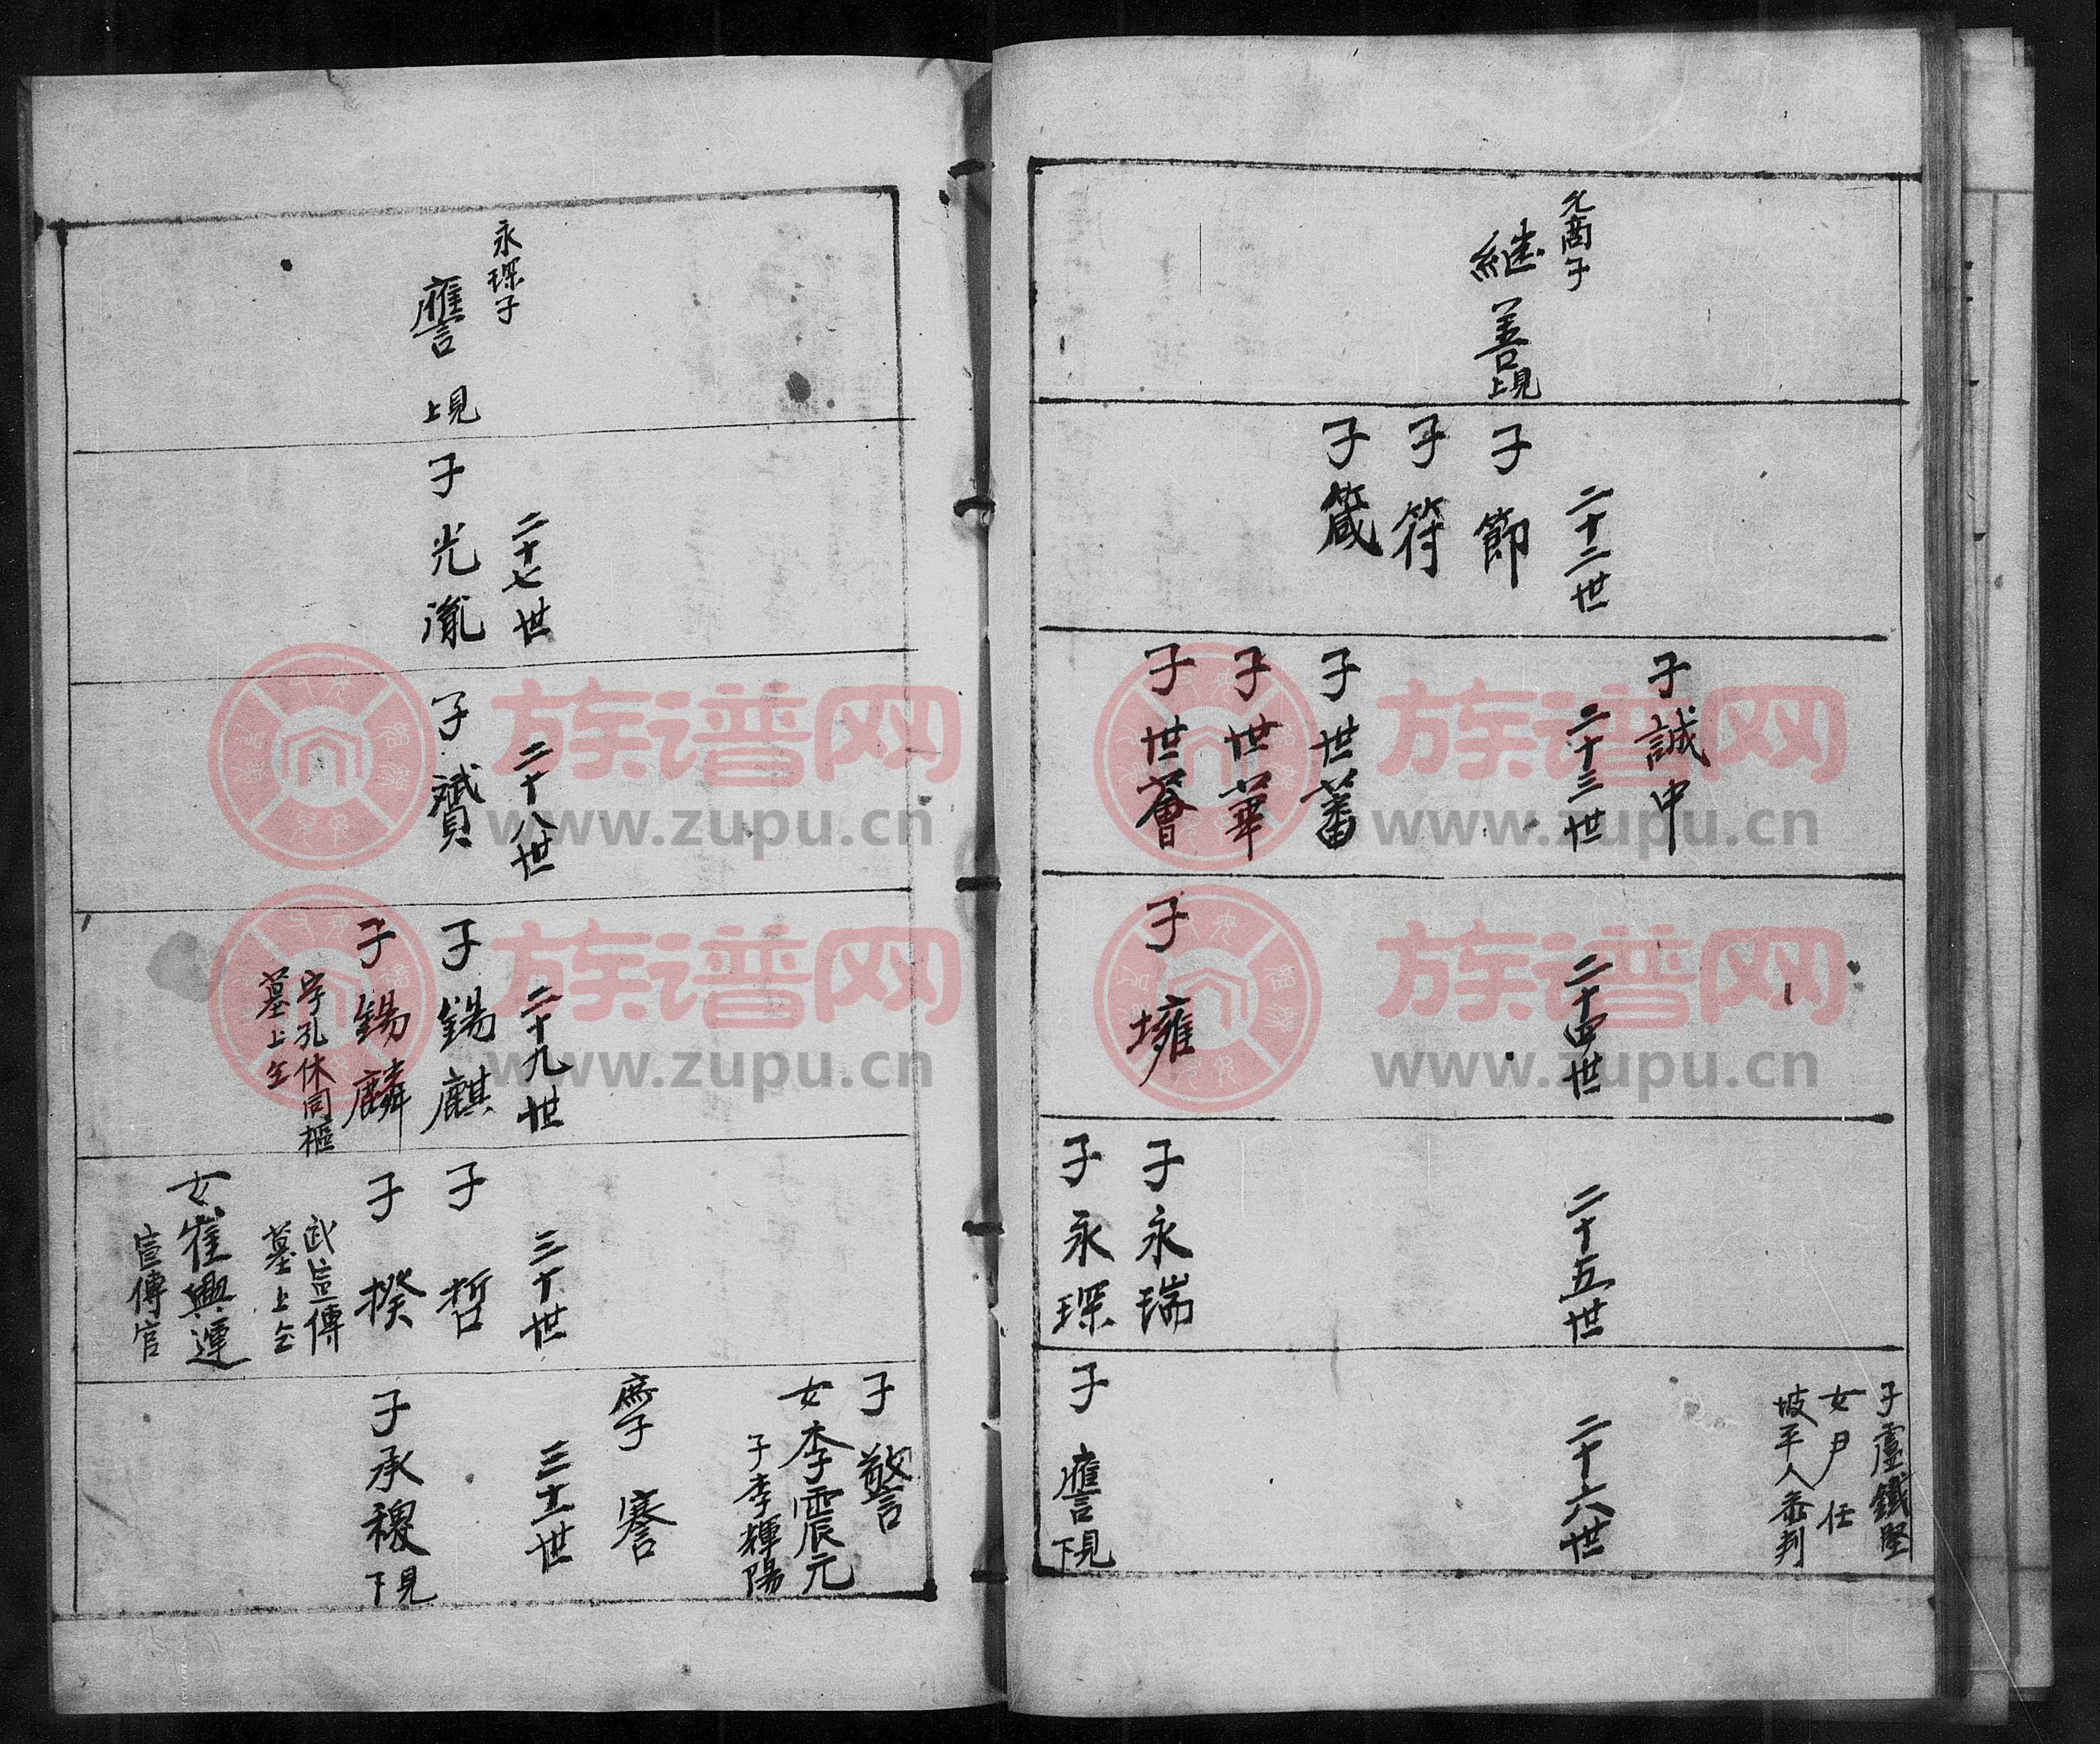 允商子
継善上見
二十二世
子節
子符
子箴
子誠中
二十三世
子世蕃
子世華
子世薈
二十四世
子壅
二十五世
子永瑞
子永琛
子盧鐵堅
女尹任
坡平人 判
二十六世
子譍下見
永琛子
譍上見
二十七世
子光胤
二十八世
子贇
二十九世
子錫麒
子錫麟
字孔休同樞
墓上仝
三十世
子哲
子揆
武宣傳
墓上仝
女崔興運
宣傳官
子警
女李震元
子李輝陽
庶子謇
三十一世
子承稷下見
族谱网
www.zupu.cn
族谱网
www.zupu.cn
族谱网
www.zupu.cn
族谱网
www.zupu.cn